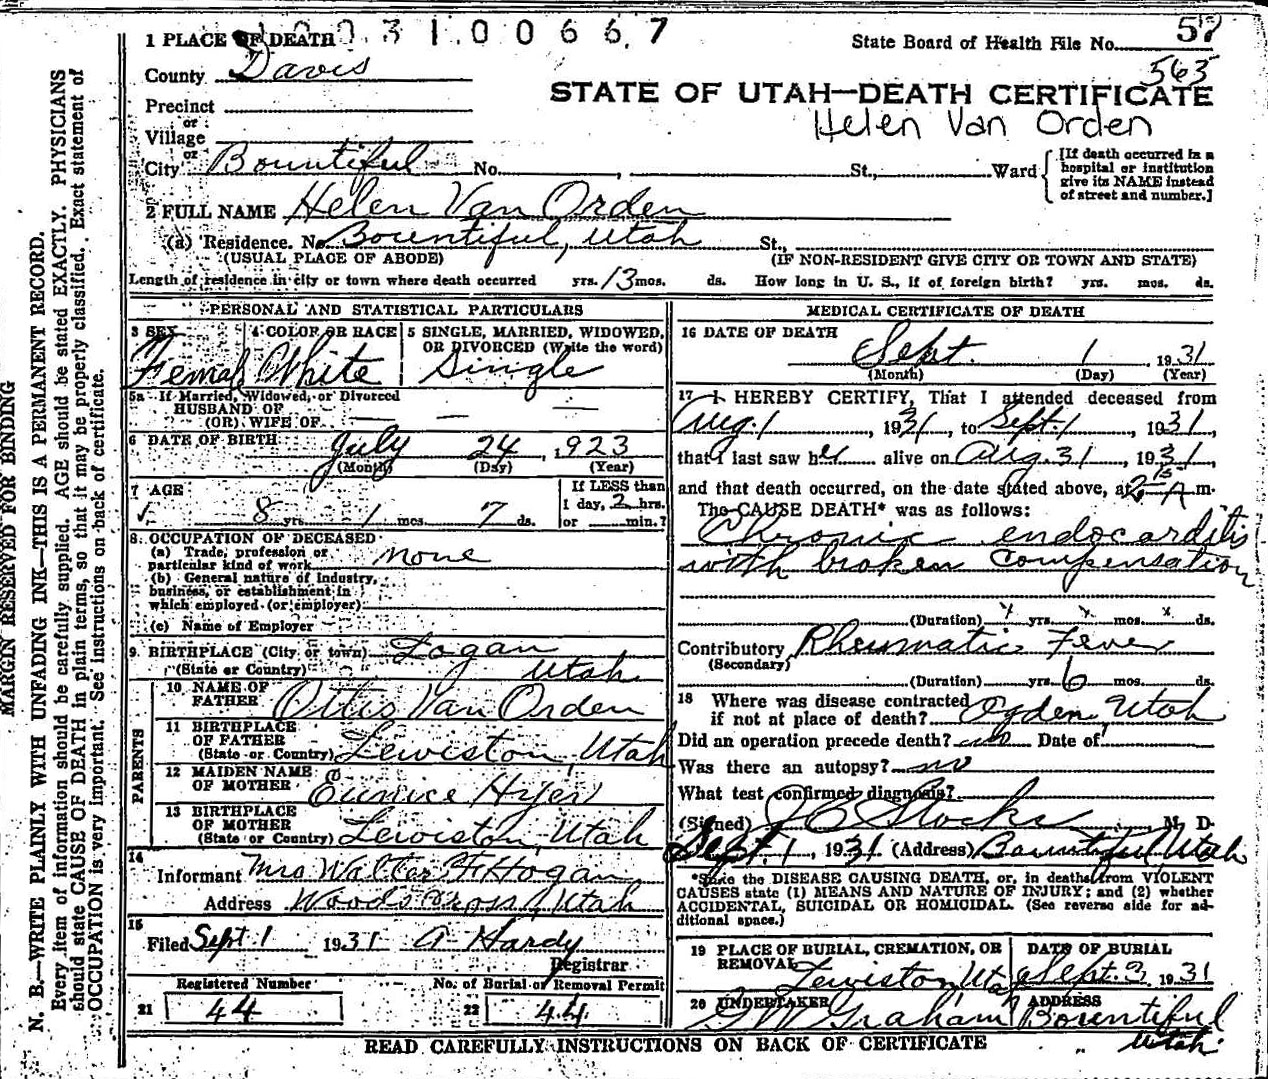 10031006 6 7
57
1 PLACE OF DEATH
State Board of Health File No.
County Davis
565
STATE OF UTAH—DEATH CERTIFICATE
Helen Van Orden
Precinct
or
Village
or
City Bountiful No. , St., Ward
[If death occurred in a hospital or institution give its NAME instead of street and number.]
2 FULL NAME Helen Van Orden
(a) Residence. No. Bountiful, Utah St.,
(USUAL PLACE OF ABODE) (IF NON-RESIDENT GIVE CITY OR TOWN AND STATE)
Length of residence in city or town where death occurred yrs. 13 mos. ds. How long in U. S., if of foreign birth? yrs. mos. ds.
PERSONAL AND STATISTICAL PARTICULARS
3 SEX 4 COLOR OR RACE 5 SINGLE, MARRIED, WIDOWED, OR DIVORCED (Write the word)
Female White Single
5a If Married, Widowed, or Divorced
HUSBAND OF
(OR) WIFE OF — — —
6 DATE OF BIRTH July 24, 1923
(Month) (Day) (Year)
7 AGE If LESS than
1 day, 2 hrs.
8 yrs. 1 mos. 7 ds. or min.?
8 OCCUPATION OF DECEASED
(a) Trade, profession or
particular kind of work none
(b) General nature of industry,
business, or establishment in
which employed (or employer)
(c) Name of Employer
9 BIRTHPLACE (City or town) Logan
(State or Country) Utah
PARENTS
10 NAME OF
FATHER Ottis Van Orden
11 BIRTHPLACE
OF FATHER
(State or Country) Lewiston, Utah
12 MAIDEN NAME
OF MOTHER Eunice Hyer
13 BIRTHPLACE
OF MOTHER
(State or Country) Lewiston, Utah
14
Informant Mrs Walter F Hogan
Address Woods Cross, Utah
15
Filed Sept 1 1931 A Hardy
Registrar
Registered Number No. of Burial or Removal Permit
21 44 22 44
MEDICAL CERTIFICATE OF DEATH
16 DATE OF DEATH
Sept. 1 1931
(Month) (Day) (Year)
17 I HEREBY CERTIFY, That I attended deceased from
Aug. 1, 1931, to Sept. 1, 1931,
that I last saw her alive on Aug. 31, 1931,
and that death occurred, on the date stated above, at 2 15 A m.
The CAUSE DEATH* was as follows:
Chronic endocarditis
with broken compensation
(Duration) x yrs. x mos. x ds.
Contributory Rheumatic Fever
(Secondary)
(Duration) yrs. 6 mos. ds.
18 Where was disease contracted
if not at place of death? Ogden, Utah
Did an operation precede death? no Date of
Was there an autopsy? no
What test confirmed diagnosis?
(Signed) J C Stocks M. D.
Sept. 1, 1931 (Address) Bountiful Utah
*State the DISEASE CAUSING DEATH, or, in deaths from VIOLENT
CAUSES state (1) MEANS AND NATURE OF INJURY; and (2) whether
ACCIDENTAL, SUICIDAL OR HOMICIDAL. (See reverse side for ad-
ditional space.)
19 PLACE OF BURIAL, CREMATION, OR REMOVAL DATE OF BURIAL
Lewiston, Utah Sept. 3 1931
20 UNDERTAKER ADDRESS
G W Graham Bountiful
Utah
READ CAREFULLY INSTRUCTIONS ON BACK OF CERTIFICATE
MARGIN RESERVED FOR BINDING
N. B.—WRITE PLAINLY WITH UNFADING INK—THIS IS A PERMANENT RECORD.
Every item of information should be carefully supplied. AGE should be stated EXACTLY. PHYSICIANS
should state CAUSE OF DEATH in plain terms, so that it may be properly classified. Exact statement of
OCCUPATION is very important. See instructions on back of certificate.